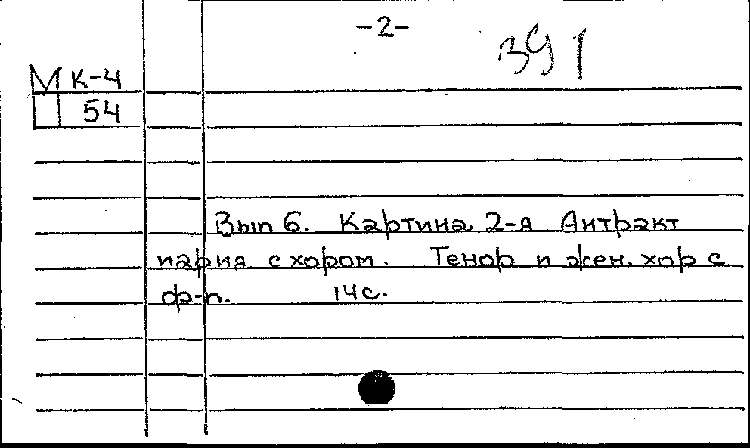 -2-
391
М К-4
54
Вып 6. Картина 2-я Антракт
и ария с хором. Тенор и жен. хор с
ф-п. 14с.